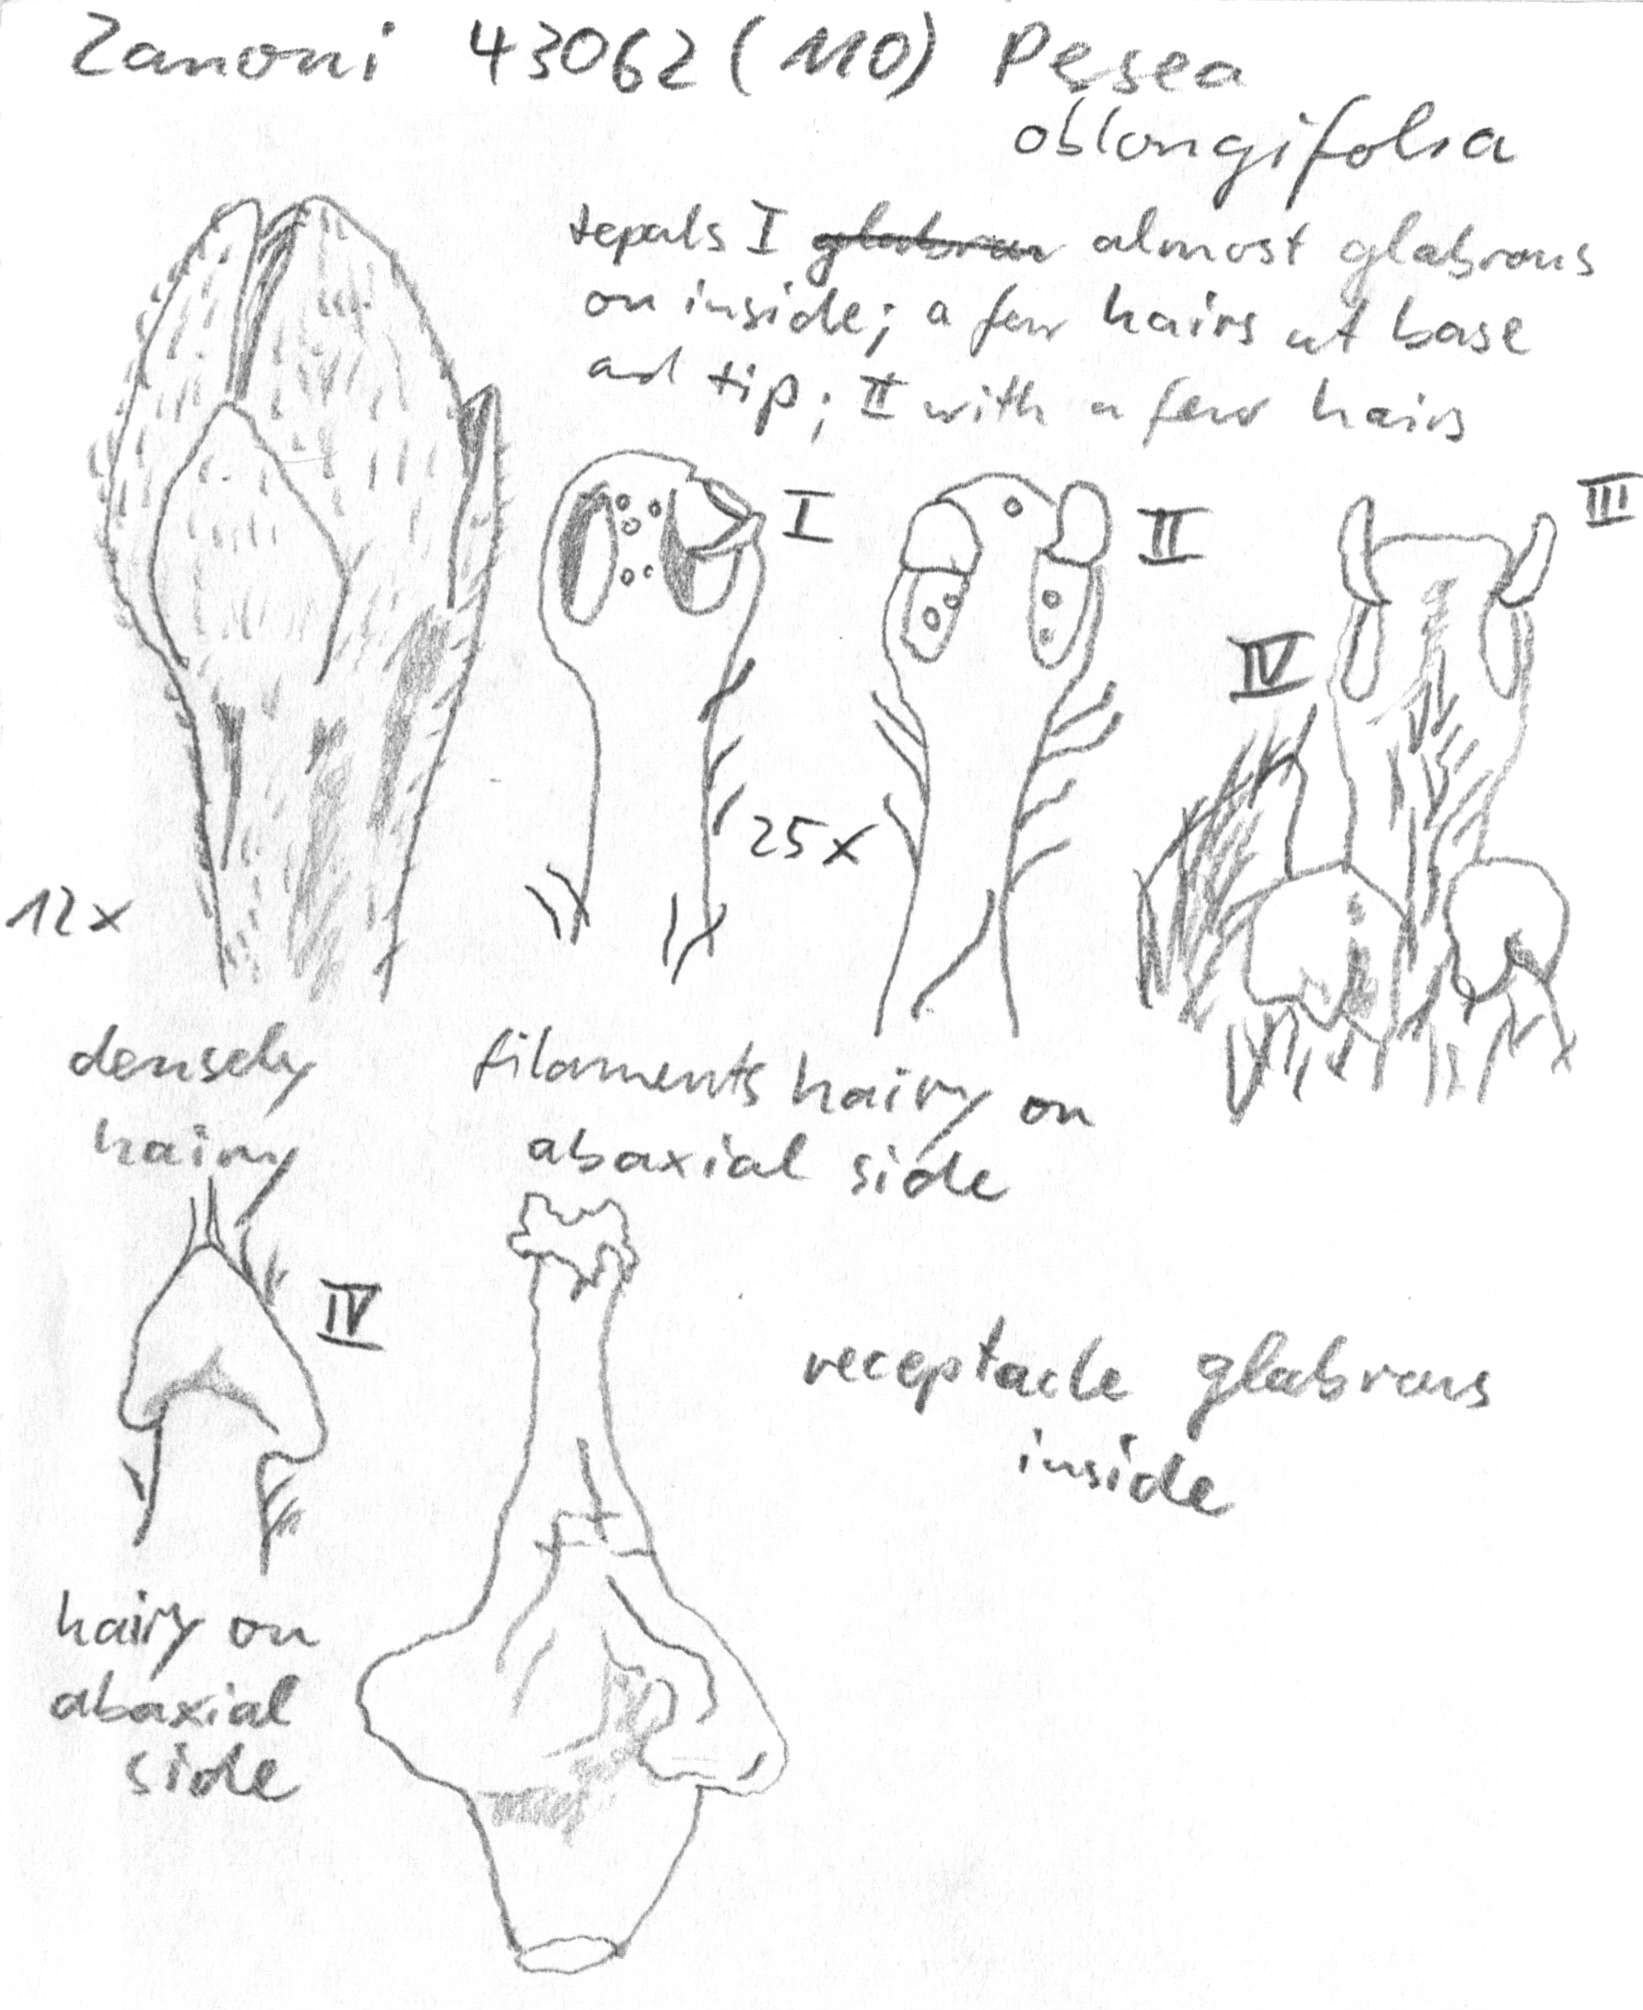 Zanoni 43062 (110) Persea
oblongifolia
tepals I glabrous almost glabrous
on inside; a few hairs at base
and tip; II with a few hairs
I
II
III
IV
25x
12x
densely
hairy
filaments hairy on
abaxial side
IV
receptacle glabrous
inside
hairy on
abaxial
side